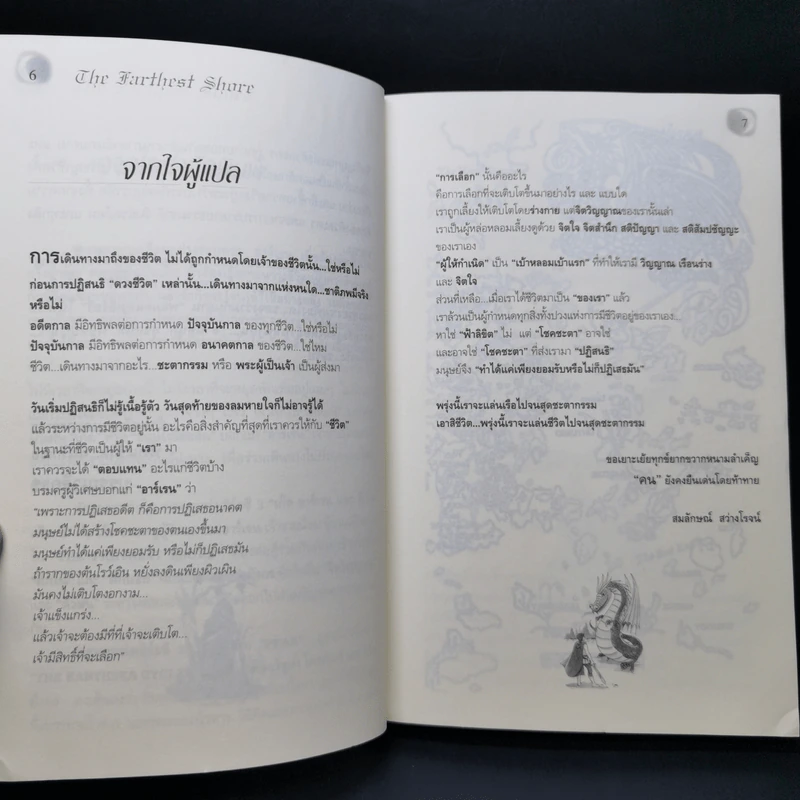 6
The Farthest Shore
จากใจผู้แปล
การเดินทางมาถึงของชีวิต ไม่ได้ถูกกำหนดโดยเจ้าของชีวิตนั้น...ใช่หรือไม่
ก่อนการปฏิสนธิ "ดวงชีวิต" เหล่านั้น...เดินทางมาจากแห่งหนใด...ชาติภพมีจริง
หรือไม่
อดีตกาล มีอิทธิพลต่อการกำหนด ปัจจุบันกาล ของทุกชีวิต...ใช่หรือไม่
ปัจจุบันกาล มีอิทธิพลต่อการกำหนด อนาคตกาล ของชีวิต...ใช่ไหม
ชีวิต...เดินทางมาจากอะไร...ชะตากรรม หรือ พระผู้เป็นเจ้า เป็นผู้ส่งมา
วันเริ่มปฏิสนธิก็ไม่รู้เนื้อรู้ตัว วันสุดท้ายของลมหายใจก็ไม่อาจรู้ได้
แล้วระหว่างการมีชีวิตอยู่นั้น อะไรคือสิ่งสำคัญที่สุดที่เราควรให้กับ "ชีวิต"
ในฐานะที่ชีวิตเป็นผู้ให้ "เรา" มา
เราควรจะได้ "ตอบแทน" อะไรแก่ชีวิตบ้าง
บรมครูผู้วิเศษบอกแก่ "อาร์เรน" ว่า
"เพราะการปฏิเสธอดีต ก็คือการปฏิเสธอนาคต
มนุษย์ไม่ได้สร้างโชคชะตาของตนเองขึ้นมา
มนุษย์ทำได้แค่เพียงยอมรับ หรือไม่ก็ปฏิเสธมัน
ถ้ารากของต้นโรว์เอิน หยั่งลงดินเพียงผิวเผิน
มันคงไม่เติบโตงอกงาม...
เจ้าแข็งแกร่ง...
แล้วเจ้าจะต้องมีที่ที่เจ้าจะเติบโต...
เจ้ามีสิทธิ์ที่จะเลือก"
7
"การเลือก" นั้นคืออะไร
คือการเลือกที่จะเติบโตขึ้นมาอย่างไร และ แบบใด
เราถูกเลี้ยงให้เติบโตโดยร่างกาย แต่จิตวิญญาณของเรานั้นเล่า
เราเป็นผู้หล่อหลอมเลี้ยงดูด้วย จิตใจ จิตสำนึก สติปัญญา และ สติสัมปชัญญะ
ของเราเอง
"ผู้ให้กำเนิด" เป็น "เบ้าหลอมเบ้าแรก" ที่ทำให้เรามี วิญญาณ เรือนร่าง
และ จิตใจ
ส่วนที่เหลือ...เมื่อเราได้ชีวิตมาเป็น "ของเรา" แล้ว
เราล้วนเป็นผู้กำหนดทุกสิ่งทั้งปวงแห่งการมีชีวิตอยู่ของเราเอง...
หาใช่ "ฟ้าลิขิต" ไม่ แต่ "โชคชะตา" อาจใช่
และอาจใช่ "โชคชะตา" ที่ส่งเรามา "ปฏิสนธิ"
มนุษย์จึง "ทำได้แค่เพียงยอมรับหรือไม่ก็ปฏิเสธมัน"
พรุ่งนี้เราจะแล่นเรือไปจนสุดชะตากรรม
เอาสิชีวิต...พรุ่งนี้เราจะแล่นชีวิตไปจนสุดชะตากรรม
ขอเยาะเย้ยทุกข์ยากขวากหนามลำเค็ญ
"คน" ยังคงยืนเด่นโดยท้าทาย
สมลักษณ์ สว่างโรจน์